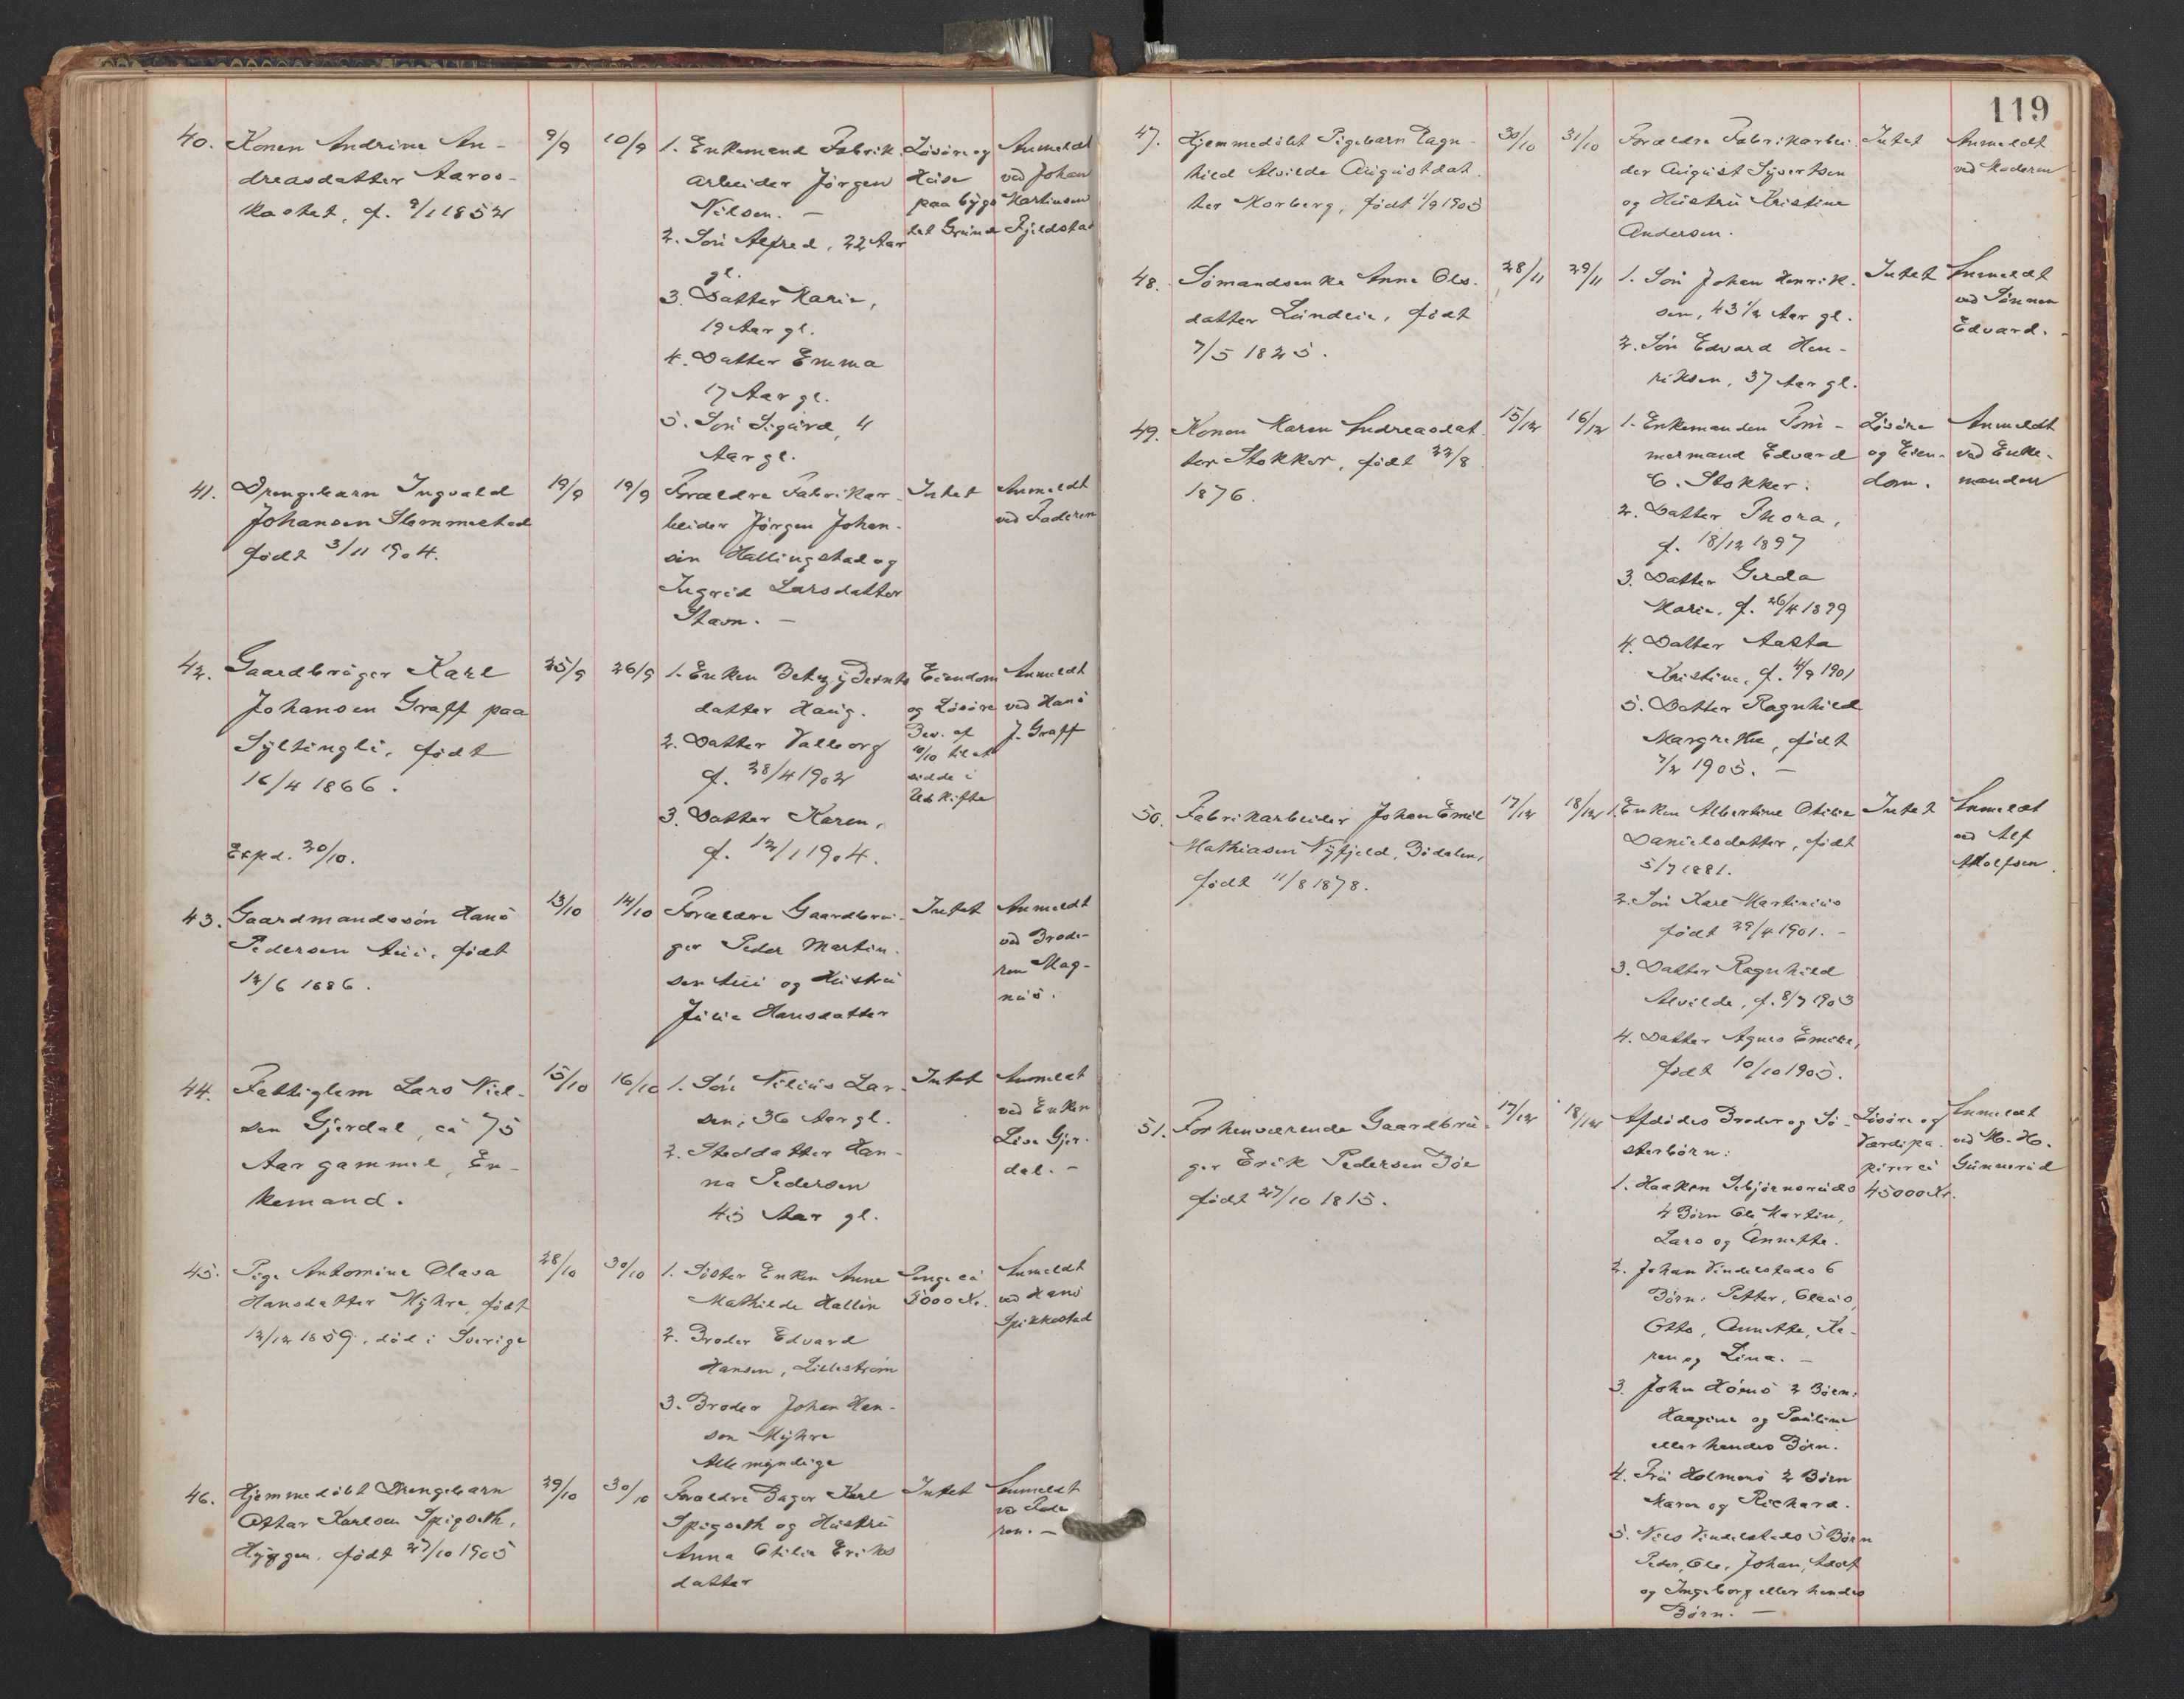 119
40. Konen Andrine An-
dreasdatter Aaros-
kastet, f. 9/1 1852
9/9
10/9
1. Enkemand Fabrik-
arbeider Jörgen
Nilsen. —
2. Sön Alfred, 22 Aar
gl.
3. Datter Marie,
19 Aar gl.
4. Datter Emma
17 Aar gl.
5. Sön Sigurd, 11
Aar gl.
Lösöre og
Huse
paa byg-
let Grund
Anmeldt
ved Johan
Martinsen
Fjeldstad
41. Drengebarn Ingvald
Johansen Slemmestad
født 3/11 1904.
19/9
19/9
Forældre Fabrikar-
beider Jörgen Johan-
sen Hallingstad og
Ingrid Larsdatter
Stavn. —
Intet
Anmeldt
ved Faderen
42. Gaardbruger Karl
Johansen Graff paa
Syltingli, født
16/4 1866.
Exped. 30/10.
25/9
26/9
1. Enken Betzy Bernts
datter Haug.
2. Datter Valborg
f. 28/4 1902
3. Datter Karen,
f. 12/1 1904.
Eiendom
og Lösöre
Bev. af
10/10 til at
sidde i
Uskifte
Anmeldt
ved Hans
J. Graff
43. Gaardmandssön Hans
Pedersen Aui, født
12/6 1886.
13/10
14/10
Forældre Gaardbru-
ger Peder Martin-
sen Aui og Hustru
Julie Hansdatter
Intet
Anmeldt
ved Brode-
ren Mag-
nus.
44. Fattiglem Lars Niel-
sen Gjerdal, ca 75
Aar gammel, En-
kemand.
15/10
16/10
1. Sön Nilius Lar-
sen, 36 Aar gl.
2. Steddatter Han-
na Pedersen
45 Aar gl.
Intet
Anmeldt
ved Enken
Lise Gjer-
dal. —
45. Pige Antomine Olava
Hansdatter Myhre, født
12/12 1859, död i Sverige
28/10
30/10
1. Söster Enken Anne
Mathilde Hallin
2. Broder Edvard
Hansen, Lilleström
3. Broder Johan Han-
sen Myhre
Alle myndige
Penge ca
5000 Kr.
Anmeldt
ved Hans
Spikkestad
46. Hjemmedöbt Drengebarn
Ottar Karlsen Spigseth,
Hyggen, født 27/10 1905
29/10
30/10
Forældre Bager Karl
Spigseth og Hustru
Anna Otilie Eriks
datter
Intet
Anmeldt
ved Fade
ren. —
47. Hjemmedöbt Pigebarn Ragn-
hild Alvilde Augustdat-
ter Morberg, født 1/9 1905
30/10
31/10
Forældre Fabrikarbei-
der August Syvertsen
og Hustru Kristine
Andersen.
Intet
Anmeldt
ved Moderen
48. Sömandsenke Anne Ols-
datter Lundeie, født
7/5 1825.
28/11
29/11
1. Sön Johan Henrik-
sen, 43 1/2 Aar gl.
2. Sön Edvard Hen-
riksen, 37 Aar gl.
Intet
Anmeldt
ved Sönnen
Edvard. —
49. Konen Maren Andreasdat-
ter Stokker, født 22/8
1876.
15/12
16/12
1. Enkemanden Töm-
mermand Edvard
C. Stokker.
2. Datter Thora,
f. 18/12 1897
3. Datter Gerda
Marie, f. 26/4 1899
4. Datter Aasta
Kristine, f. 4/9 1901
5. Datter Ragnhild
Margrethe, født
7/2 1905. —
Lösöre
og Eien-
dom.
Anmeldt
ved Enke-
manden
50. Fabrikarbeider Johan Emil
Mathiasen Nyfjeld, Bödalen,
født 11/8 1878.
17/12
18/12
1. Enken Albertine Otilie
Danielsdatter, født
5/7 1881.
2. Sön Karl Martinius
født 29/4 1901. —
3. Datter Ragnhild
Alvilde, f. 8/7 1903
4. Datter Agnes Emilie,
født 10/10 1905.
Intet
Anmeldt
ved Alf
Adolfsen.
51. Forhenværende Gaardbru-
ger Erik Pedersen Böe
født 27/10 1815.
17/12
18/12
Afdödes Broder og Sö-
sterbörn:
1. Haakon Sebjörnsruds
4 Börn Ole, Martin,
Lars og Annette.
2. Johan Vindelstads 6
Börn: Petter, Olaus,
Otto, Annette, Ka-
ren og Lina. —
3. John Höens 2 Börn:
Haagine og Pauline
eller hendes Börn.
4. Fru Holmens 2 Börn
Maren og Richard.
5. Nils Vindelstads 5 Börn
Peder, Ole, Johan,
og Ingeborg eller hendes
Börn. —
Lösöre og
Værdipa-
pirer ca
45000 Kr.
Anmeldt
ved M. H.
Gunnerud